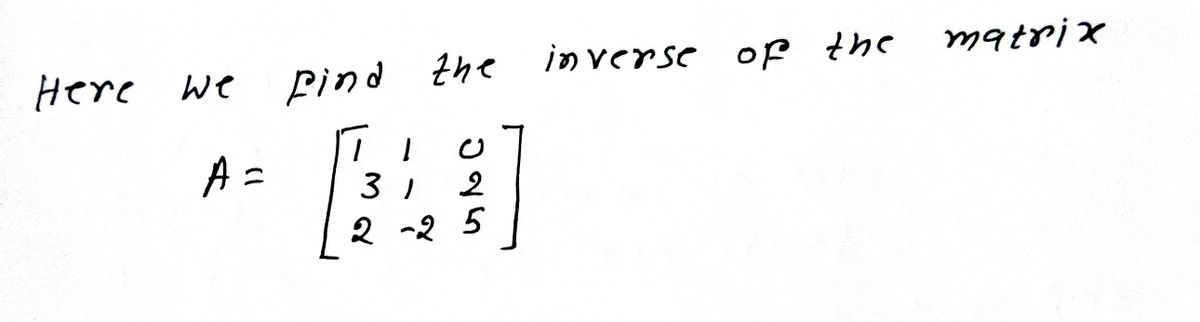 Here we find the inverse of the matrix
A = [ 1 1 0
3 1 2
2 -2 5 ]